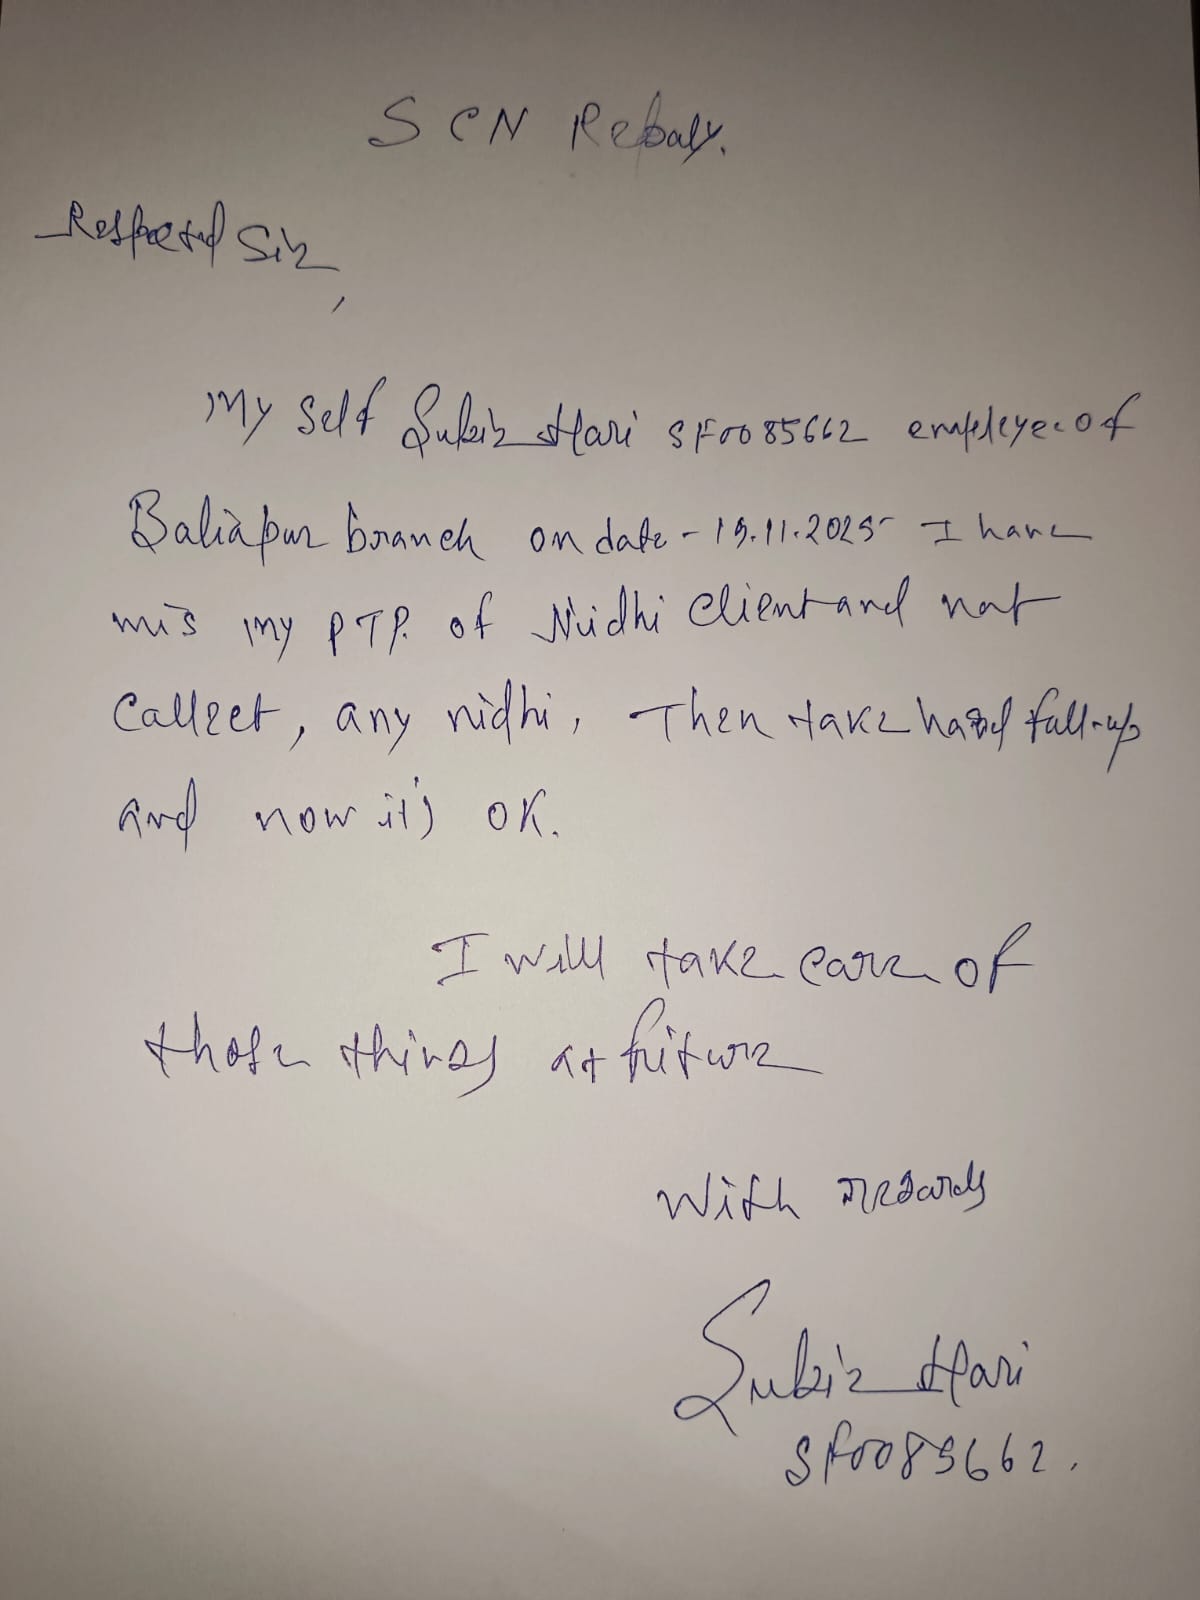 SCN Rebaly.
Respected Sir
,
My Self Subir Hari SF0085662 employee of
Baliapur branch on date - 19.11.2025 I have
mis my PTP. of Nidhi Client and not
Callect, any nidhi, Then take hard fall-up
And now it's OK.
I will take care of
those things at future
With regards
Subir Hari
SF0085662.